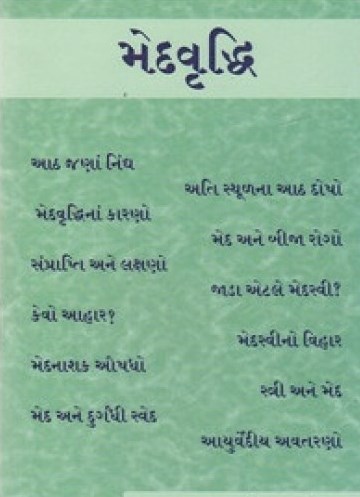 મેદવૃદ્ધિ
આઠ જણાં નિંદ્ય
અતિ સ્થૂળના આઠ દોષો
મેદવૃદ્ધિનાં કારણો
મેદ અને બીજા રોગો
સંપ્રાપ્તિ અને લક્ષણો
જાડા એટલે મેદસ્વી?
કેવો આહાર?
મેદસ્વીનો વિહાર
મેદનાશક ઔષધો
સ્ત્રી અને મેદ
મેદ અને દુર્ગંધી સ્વેદ
આયુર્વેદીય અવતરણો